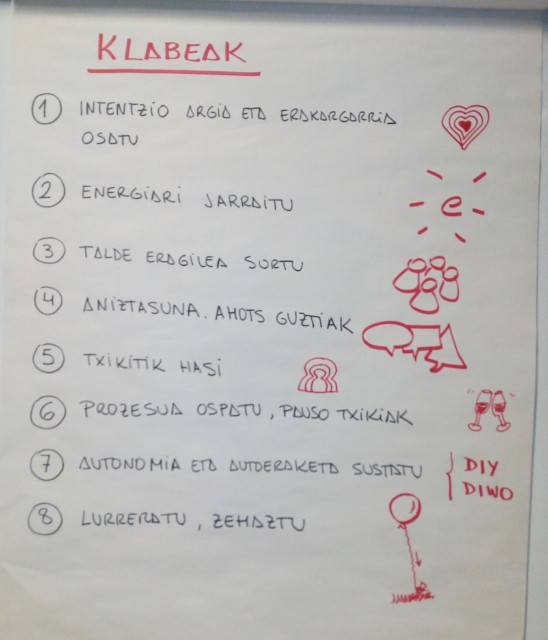 KLABEAK
1 INTENTZIO ARGIA ETA ERAKARGARRIA
OSATU
2 ENERGIARI JARRAITU
e
3 TALDE ERAGILEA SORTU
4 ANIZTASUNA. AHOTS GUZTIAK
5 TXIKITIK HASI
6 PROZESUA OSPATU, PAUSO TXIKIAK
7 AUTONOMIA ETA AUTOERAKETA SUSTATU { DIY
DIWO
8 LURRERATU, ZEHAZTU